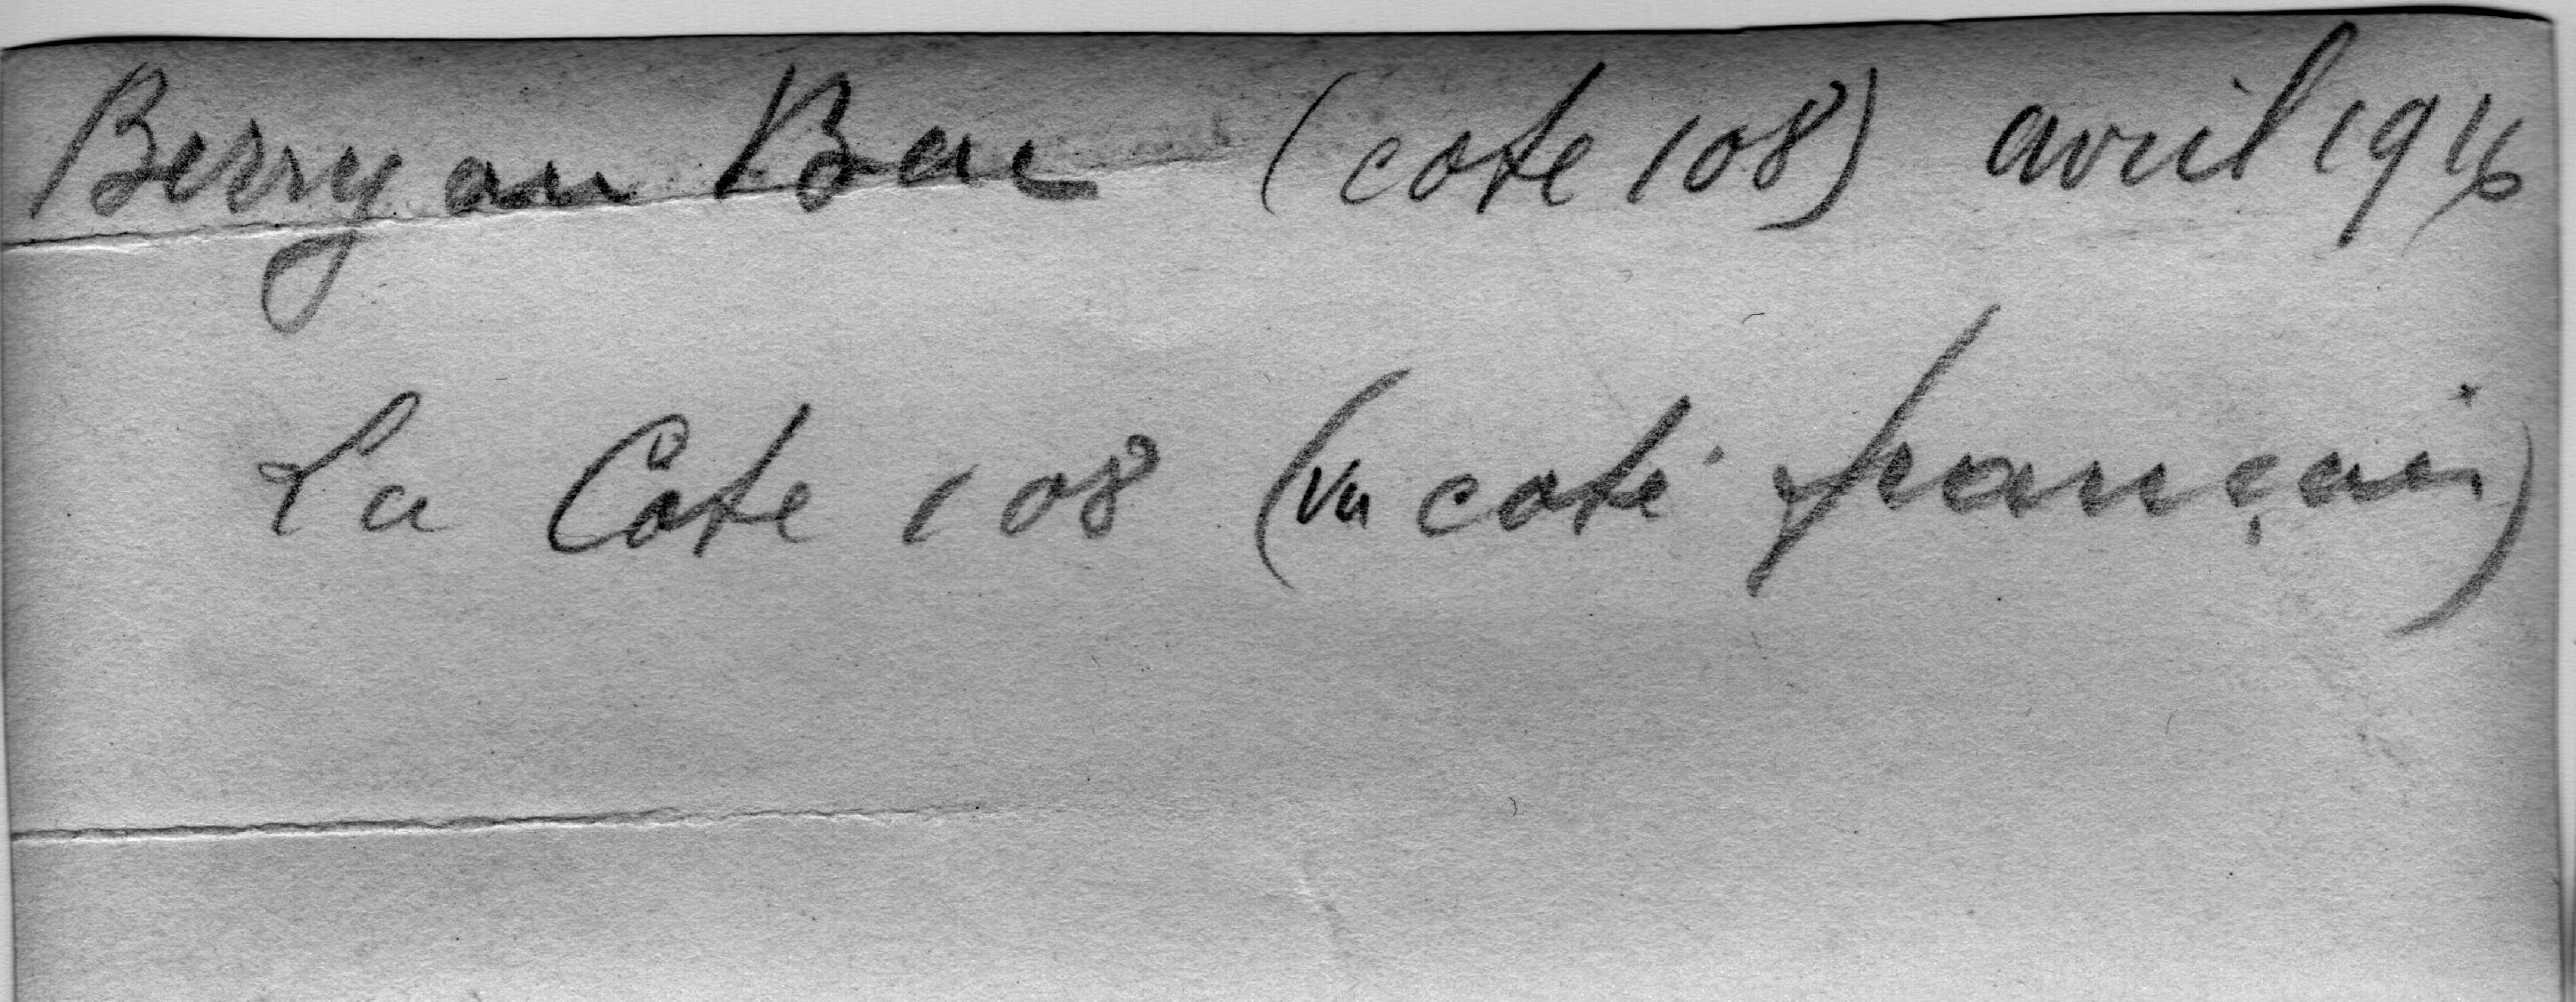 Berry au Bac (cote 108) avril 1916
La Côte 108 (vu coté français)